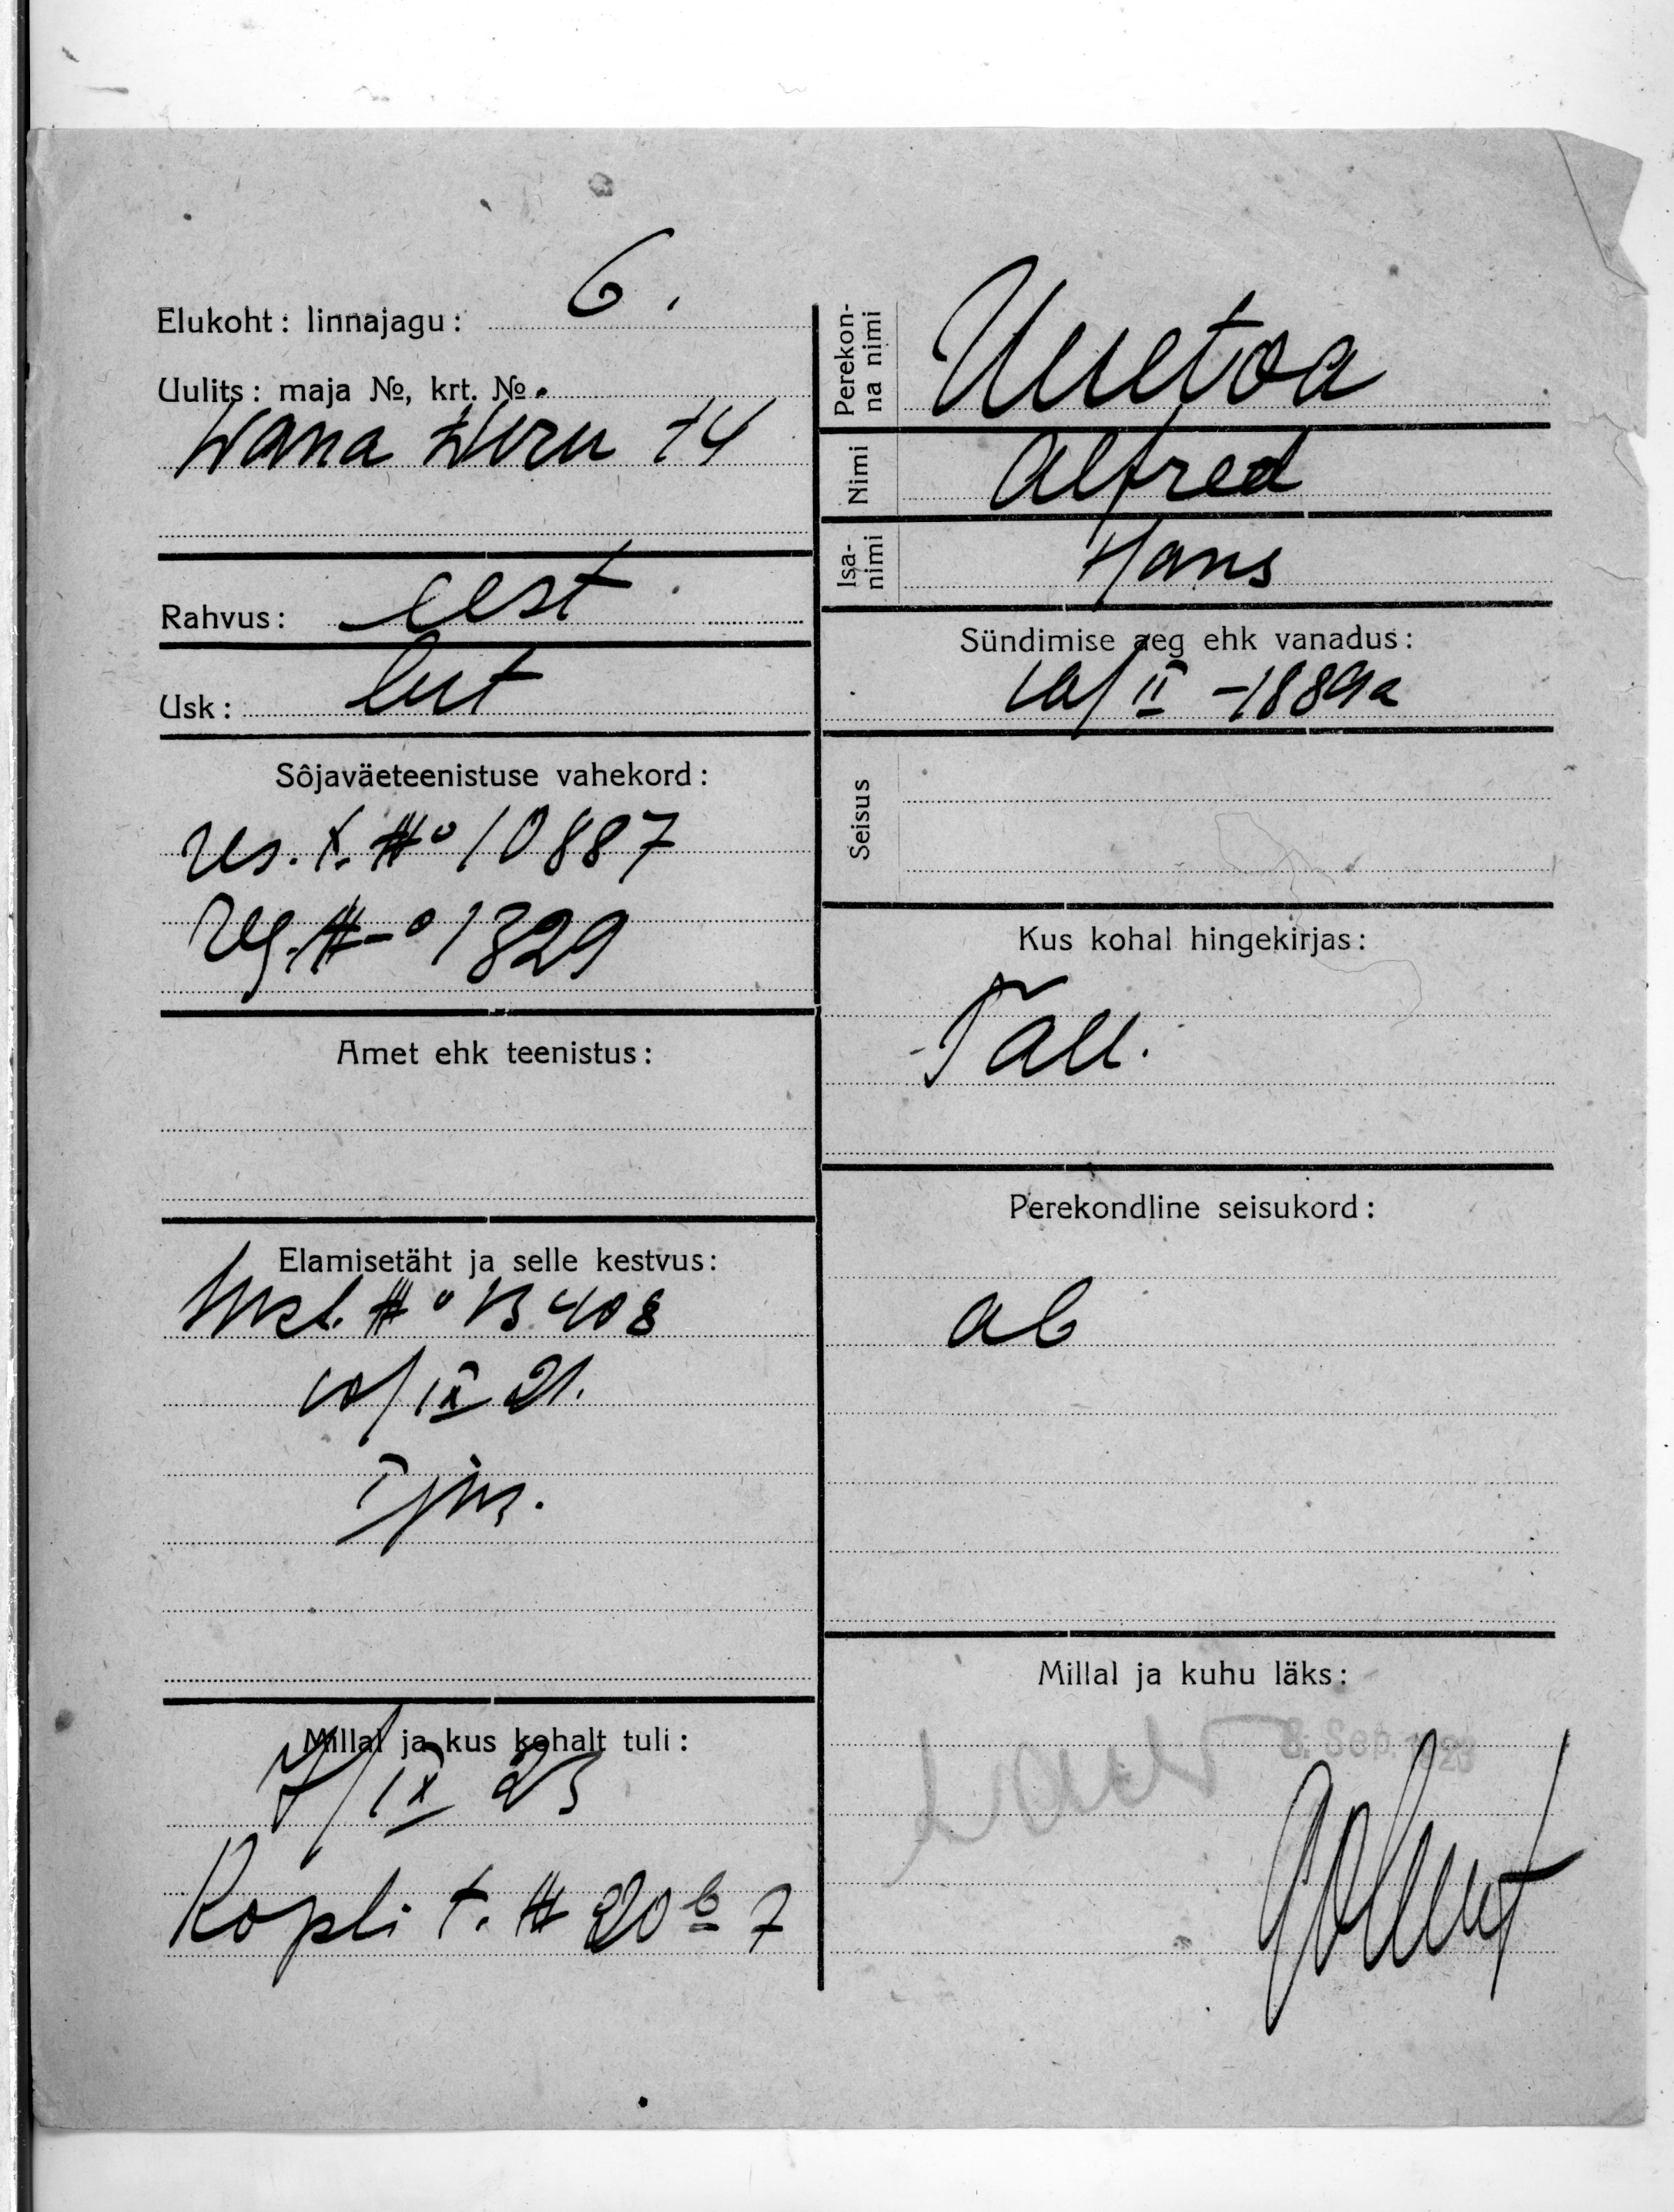 Elukoht: linnajagu: 6.
Uulits: maja №, krt. №.
Wana Wiru 14
Rahvus: eest
Usk: lut
Sôjaväeteenistuse vahekord:
№ 10887
№ 1329
Amet ehk teenistus:
Elamisetäht ja selle kestvus:
№ 13408
10/IX 21.
I jsk.
Millal ja kus kohalt tuli:
7/IX 23
Kopli t. № 20 b 7
Perekon-
na nimi
Uuetoa
Nimi
Alfred
Isa-
nimi
Hans
Sündimise aeg ehk vanadus:
10/II -1889a
Seisus
Kus kohal hingekirjas:
Tall.
Perekondline seisukord:
ab
Millal ja kuhu läks:
8. Sep. 1923